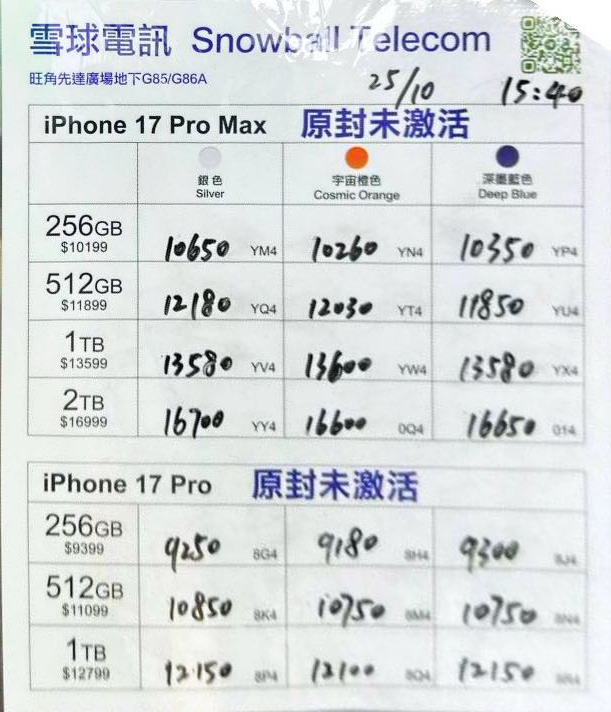 雪球電訊 Snowball Telecom
旺角先達廣場地下G85/G86A
25/10 15:40
iPhone 17 Pro Max 原封未激活
銀色 宇宙橙色 深墨藍色
Silver Cosmic Orange Deep Blue
256GB 10650 YM4 10260 YN4 10350 YP4
$10199
512GB 12180 YQ4 12030 YT4 11850 YU4
$11899
1TB 13580 YV4 13600 YW4 13580 YX4
$13599
2TB 16700 YY4 16600 0Q4 16650 014
$16999
iPhone 17 Pro 原封未激活
256GB 9250 8G4 9180 8H4 9300 8J4
$9399
512GB 10850 8K4 10750 8M4 10750 8N4
$11099
1TB 12150 8P4 12100 8Q4 12150
$12799